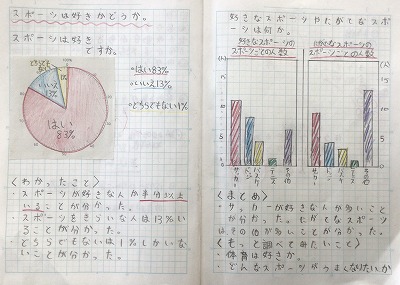 スポーツは好きかどうか。
スポーツは好き
ですか。
どちらでも
ない
いいえ
13%
はい
83%
○はい83%
○いいえ13%
○どちらでもない1%
〈わかったこと〉
・スポーツが好きな人が半分以上
いることが分かった。
・スポーツをきらいな人は13%い
ることが分かった。
・どちらでもないは1%しかいな
いことが分かった。
好きなスポーツやにがてなスポ
ーツは何か。
好きなスポーツの
スポーツごとの人数
にがてなスポーツの
スポーツごとの人数
(人)
15
10
5
0
サッカー
ドッジ
バスケ
テニス
その他
(人)
15
10
5
0
サッカー
ドッジ
バスケ
テニス
その他
〈まとめ〉
・サッカーが好きな人が多いこと
が分かった。にがてなスポーツ
はその他が多いことが分かった。
〈もっと調べてみたいこと〉
・体育は好きか。
・どんなスポーツがうまくなりたいか